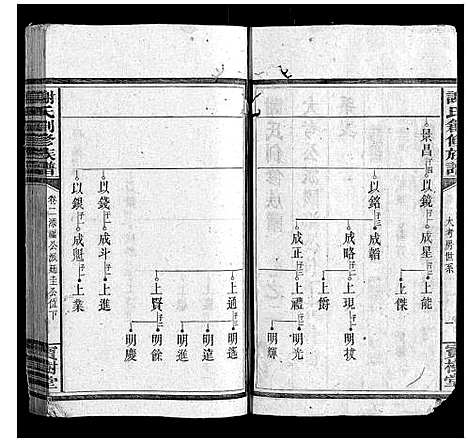 謝氏創修族譜
大考房世系
寶樹堂
景昌
以鏡
成星
上能
上傑
以銘
成韜
成略
上現
明拔
上爵
成正
上禮
明光
明輝
上通
明遙
明達
明進
上賢
明餘
明慶
以錢
成斗
上進
以銀
成魁
上業
謝氏創修族譜
寶樹堂